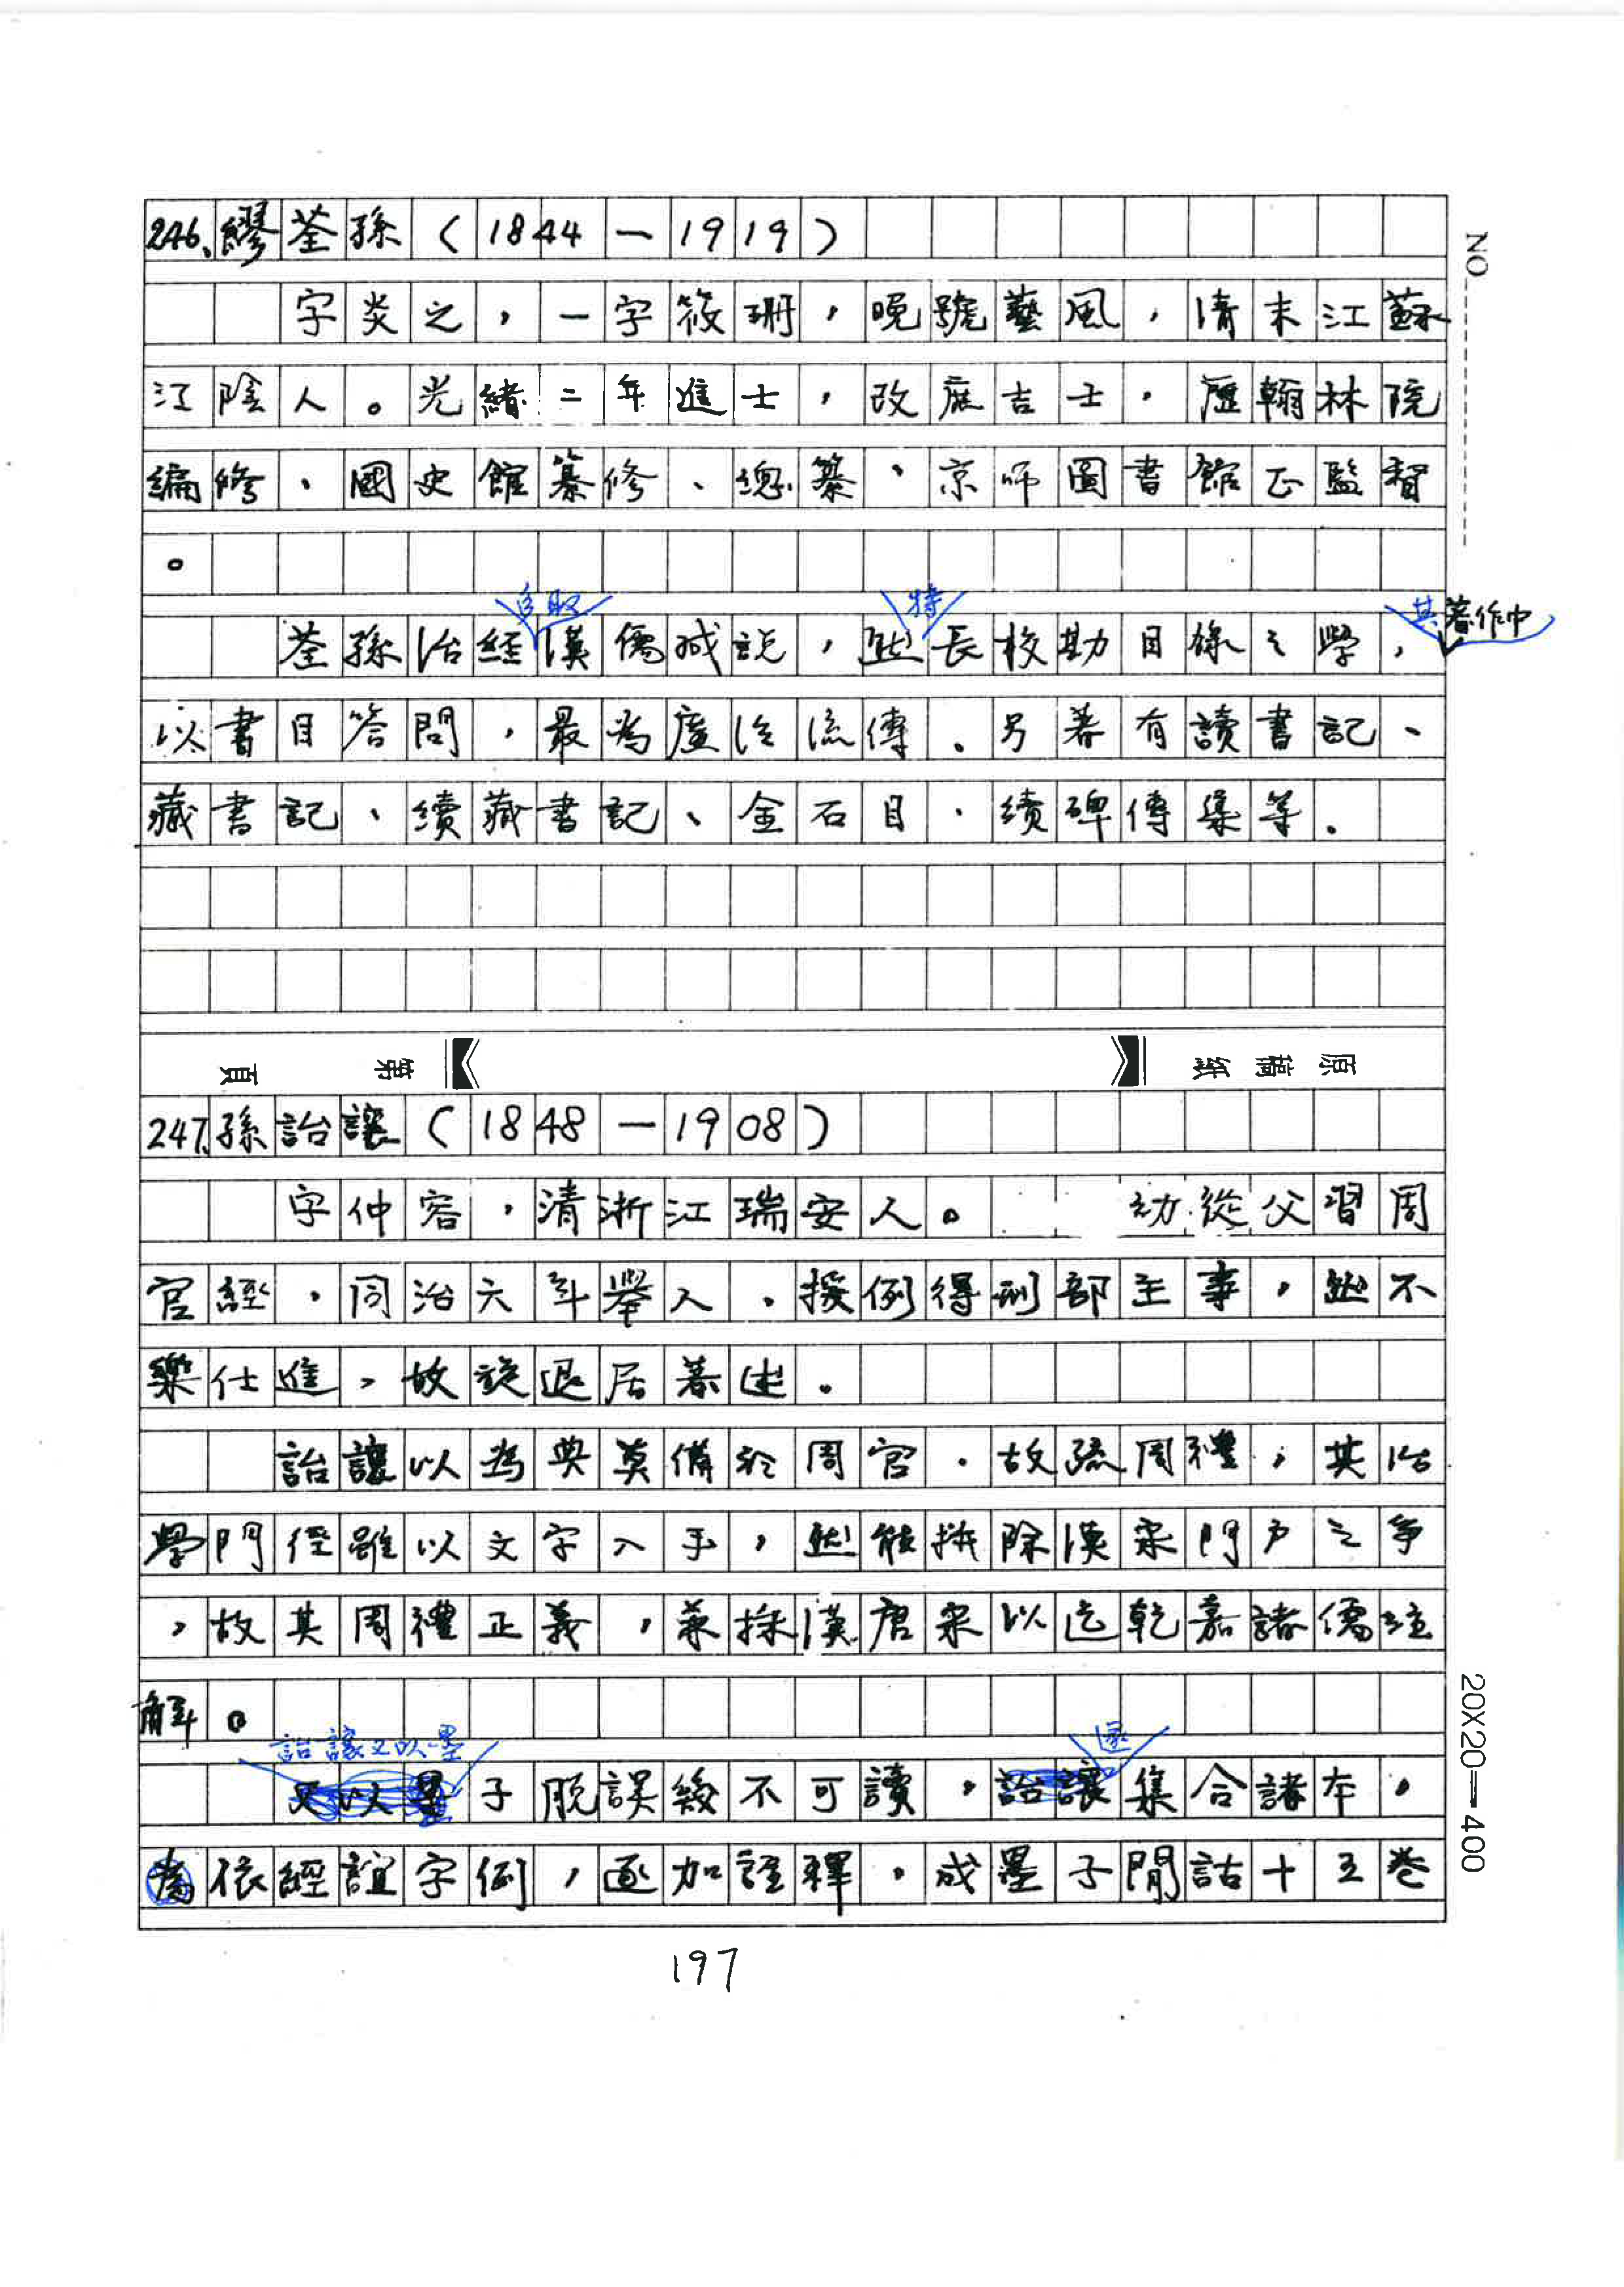 246.繆荃孫(1844-1919)
NO
字炎之,一字筱珊,晚號藝風,清末江蘇
江陰人。光緒二年進士,改庶吉士,歷翰林院
編修、國史館纂修、總纂、京師圖書館正監督
。
取 特 其著作中
荃孫治經漢儒成說,然長校勘目錄之學,
以書目答問,最為廣泛流傳。另著有讀書記、
藏書記、續藏書記、金石目、續碑傳集等。
原稿紙 第 頁
247.孫詒讓(1848-1908)
字仲容,清浙江瑞安人。幼從父習周
官經,同治六年舉人,援例得刑部主事,然不
樂仕進,故旋退居著述。
詒讓以為典莫備於周官,故疏周禮,其治
學門徑雖以文字入手,然能摒除漢宋門戶之爭
,故其周禮正義,兼採漢唐宋以迄乾嘉諸儒注
解。
詒讓又以墨 遂
又以墨子脫誤幾不可讀,詒讓集合諸本,
為依經誼字例,逐加詮釋,成墨子閒詁十五卷
20X20=400
197